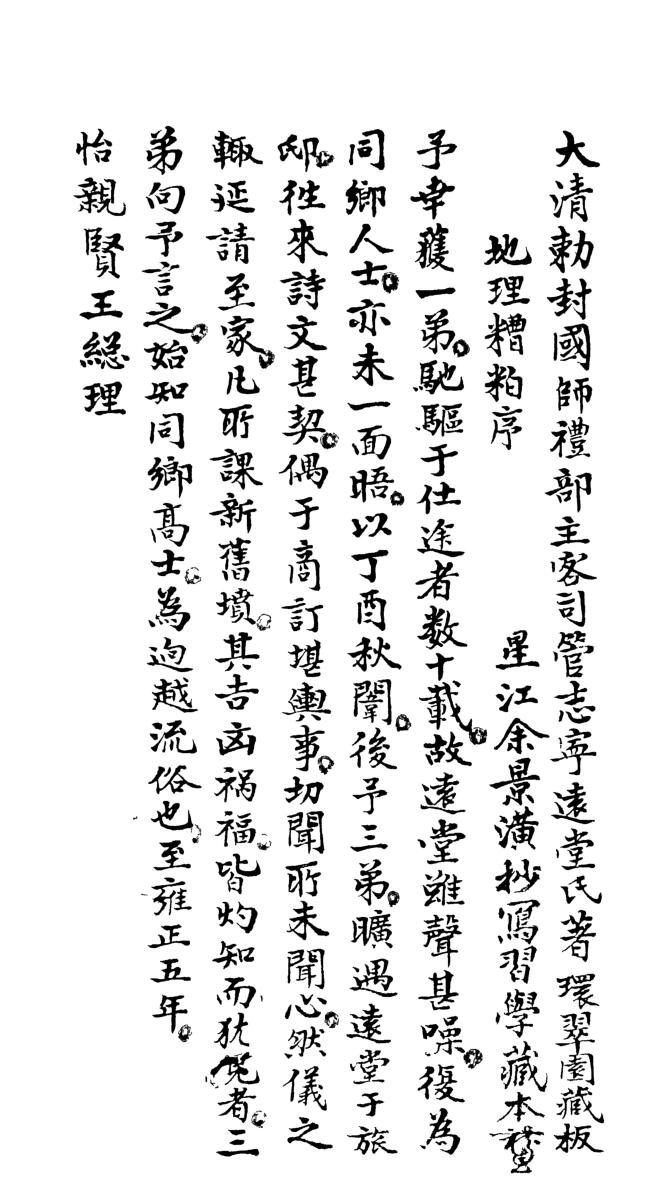 大清勅封國師禮部主客司管志寧遠堂氏著環翠園藏板
地理糟粕序 星江余景潢抄寫習學藏本
予幸獲一弟馳驅于仕途者数十載故遠堂雖聲甚噪復為
同鄉人士亦未一面晤以丁酉秋闈後予三弟曠遇遠堂于旅
邸徃來詩文甚契偶于商訂堪輿事切聞所未聞心然儀之
輙延請至家凡所課新舊墳其吉凶禍福皆灼知而犹覓者三
弟向予言之始知同鄉高士為逈越流俗也至雍正五年
怡親賢王総理